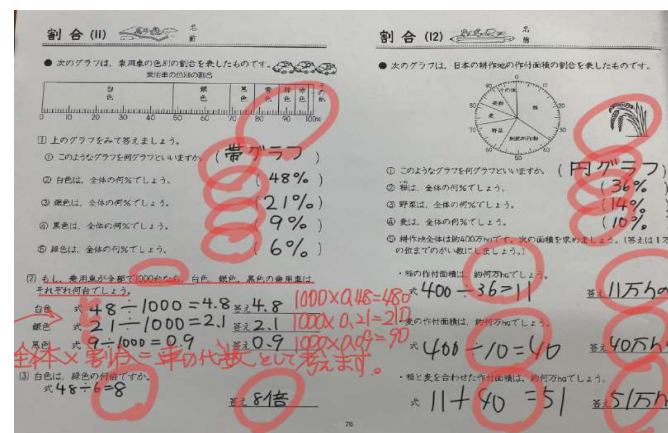 割合 (11)
名前
● 次のグラフは、乗用車の色別の割合を表したものです。
乗用車の色別の割合
白色 銀色 黒色 青色 緑色 赤色 その他
0 10 20 30 40 50 60 70 80 90 100%
① 上のグラフをみて答えましょう。
① このようなグラフを何グラフといいますか。 (帯グラフ)
② 白色は、全体の何%でしょう。 (48%)
③ 銀色は、全体の何%でしょう。 (21%)
④ 黒色は、全体の何%でしょう。 (9%)
⑤ 緑色は、全体の何%でしょう。 (6%)
② もし、乗用車が全部で1000台なら、白色、銀色、黒色の乗用車は、
それぞれ何台でしょう。
白色 式 48÷1000=4.8 答え 4.8 1000×0.48=480
銀色 式 21÷1000=2.1 答え 2.1 1000×0.21=210
黒色 式 9÷1000=0.9 答え 0.9 1000×0.09=90
全体×割合=車の代数として考えます。
③ 白色は、緑色の何倍ですか。
式 48÷6=8
答え 8倍
割合 (12)
名前
● 次のグラフは、日本の耕作地の作付面積の割合を表したものです。
その他 果樹 麦 野菜 飼肥料作物 稲
① このようなグラフを何グラフといいますか。 (円グラフ)
② 稲は、全体の何%でしょう。 (36%)
③ 野菜は、全体の何%でしょう。 (14%)
④ 麦は、全体の何%でしょう。 (10%)
⑤ 耕作地全体は約400万haです。次の面積を求めましょう。(答えは1万
の位までのがい数にしましょう。)
・稲の作付面積は、約何万haでしょう。
式 400÷36=11 答え 11万ha
・麦の作付面積は、約何万haでしょう。
式 400÷10=40 答え 40万ha
・稲と麦を合わせた作付面積は、約何万haでしょう。
式 11+40=51 答え 51万h
76